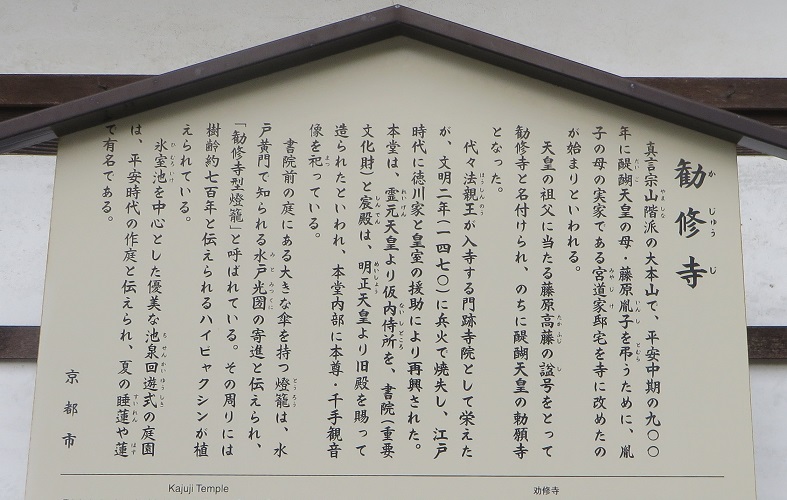 勧修寺
かじゅうじ
真言宗山階派の大本山で、平安中期の九〇〇
年に醍醐天皇の母・藤原胤子を弔うために、胤
子の母の実家である宮道家邸宅を寺に改めたの
が始まりといわれる。
天皇の祖父に当たる藤原高藤の諡号をとって
勧修寺と名付けられ、のちに醍醐天皇の勅願寺
となった。
代々法親王が入寺する門跡寺院として栄えた
が、文明二年(一四七〇)に兵火で焼失し、江戸
時代に徳川家と皇室の援助により再興された。
本堂は、霊元天皇より仮内侍所を、書院(重要
文化財)と宸殿は、明正天皇より旧殿を賜って
造られたといわれ、本堂内部に本尊・千手観音
像を祀っている。
書院前の庭にある大きな傘を持つ燈籠は、水
戸黄門で知られる水戸光圀の寄進と伝えられ、
「勧修寺型燈籠」と呼ばれている。その周りには
樹齢約七百年と伝えられるハイビャクシンが植
えられている。
氷室池を中心とした優美な池泉回遊式の庭園
は、平安時代の作庭と伝えられ、夏の睡蓮や蓮
で有名である。
京都市
Kajuji Temple
劝修寺